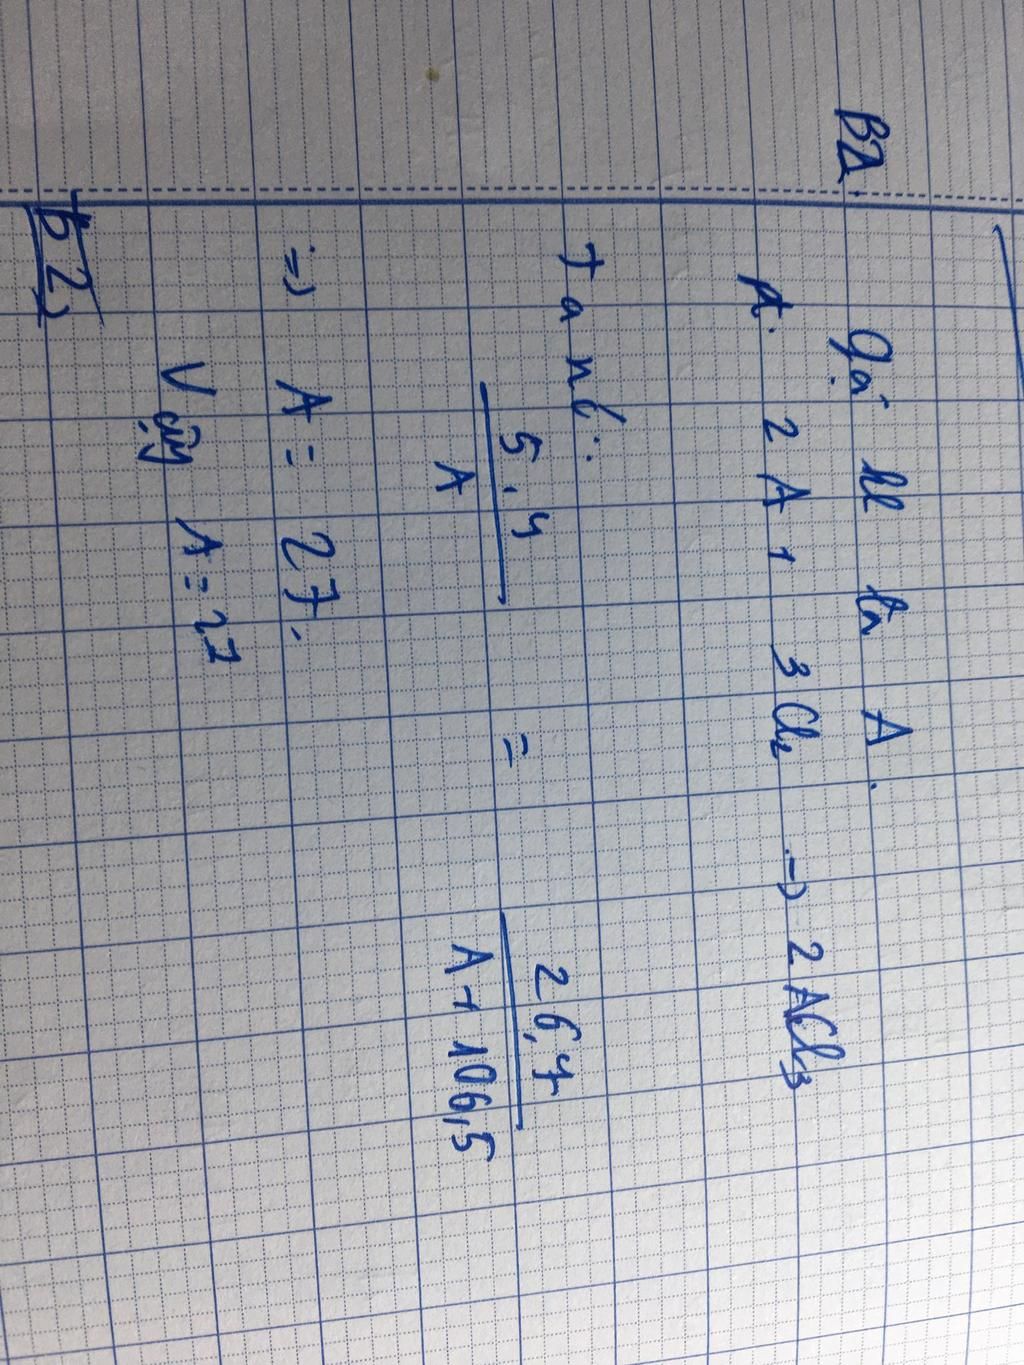 B2.
Gọi kl là A.
2A + 3Cl₂ → 2ACl₃
Ta có:
5.4/A = 26,7/(A + 106,5)
=> A = 27.
Vậy A = 27